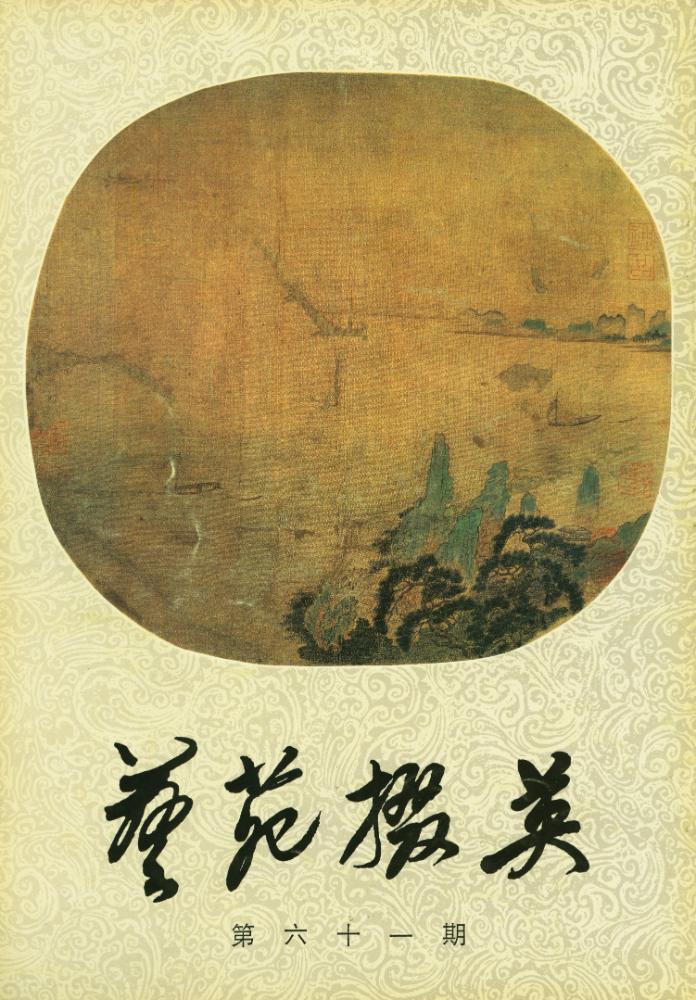 藝苑掇英
第六十一期